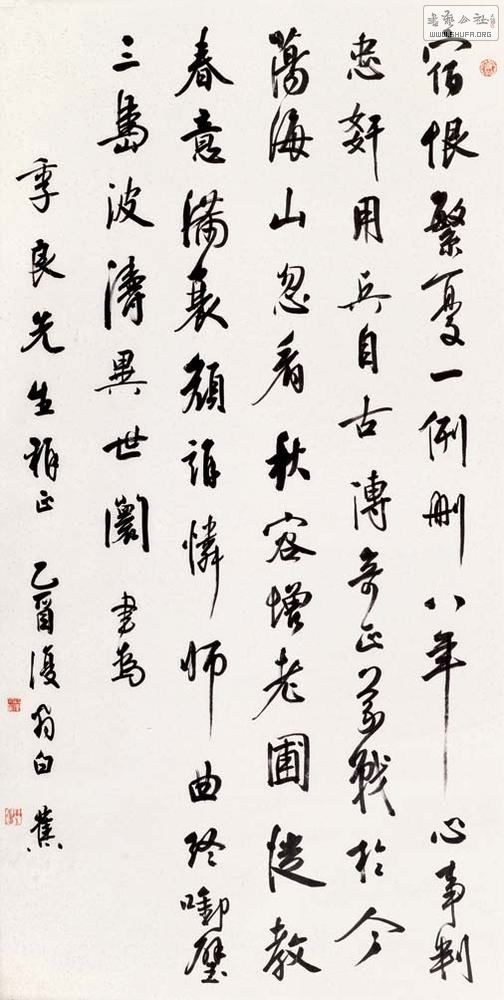 宿恨繁憂一例刪八年心事判
忠奸用兵自古傳奇正義戰於今
蕩海山忽看秋容增老圃從教
春意滿衰顏誰憐師曲終啣璧
三島波濤異世闤 書為
季良先生雅正 乙酉復翁白蕉
书艺公社
WWW.SHUFA.ORG